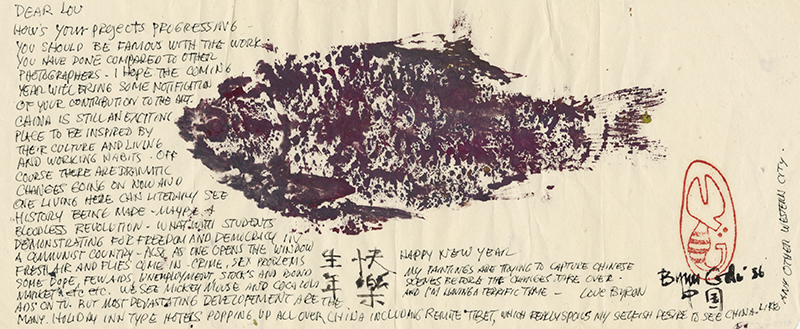 DEAR LOU
HOW'S YOUR PROJECTS PROGRESSING -
YOU SHOULD BE FAMOUS WITH THE WORK
YOU HAVE DONE COMPARED TO OTHER
PHOTOGRAPHERS. I HOPE THE COMING
YEAR WILL BRING SOME NOTIFICATION
OF YOUR CONTRIBUTION TO THE ART.
CHINA IS STILL AN EXCITING
PLACE TO BE INSPIRED BY
THEIR CULTURE AND LIVING
AND WORKING HABITS. OFF
COURSE THERE ARE DRAMATIC
CHANGES GOING ON NOW AND
ONE LIVING HERE CAN LITERALLY SEE
HISTORY BEING MADE - MAYBE A
BLOODLESS REVOLUTION. WHAT WITH STUDENTS
DEMONSTRATING FOR FREEDOM AND DEMOCRACY IN
A COMMUNIST COUNTRY - ALSO AS ONE OPENS THE WINDOW
FRESH AIR AND FLIES COME IN. CRIME, SEX PROBLEMS
SOME DOPE, FEW AIDS, UNEMPLOYMENT, STOCKS AND BOND
MARKETS ETC ETC. WE SEE MICKEY MOUSE AND COCA COLA
ADS ON TV. BUT MOST DEVASTATING DEVELOPEMENT ARE THE
MANY HOLIDAY INN TYPE HOTELS POPPING UP ALL OVER CHINA INCLUDING REMOTE TIBET, WHICH REALLY SPOILS MY SELFISH DESIRE TO SEE CHINA LIKE
ANY OTHER WESTERN CITY.
快樂
生年
HAPPY NEW YEAR
MY PAINTINGS ARE TRYING TO CAPTURE CHINESE
SCENES BEFORE THE CHANGES TAKE OVER
AND I'M HAVING A TERRIFIC TIME - LOVE BYRON
86
中国